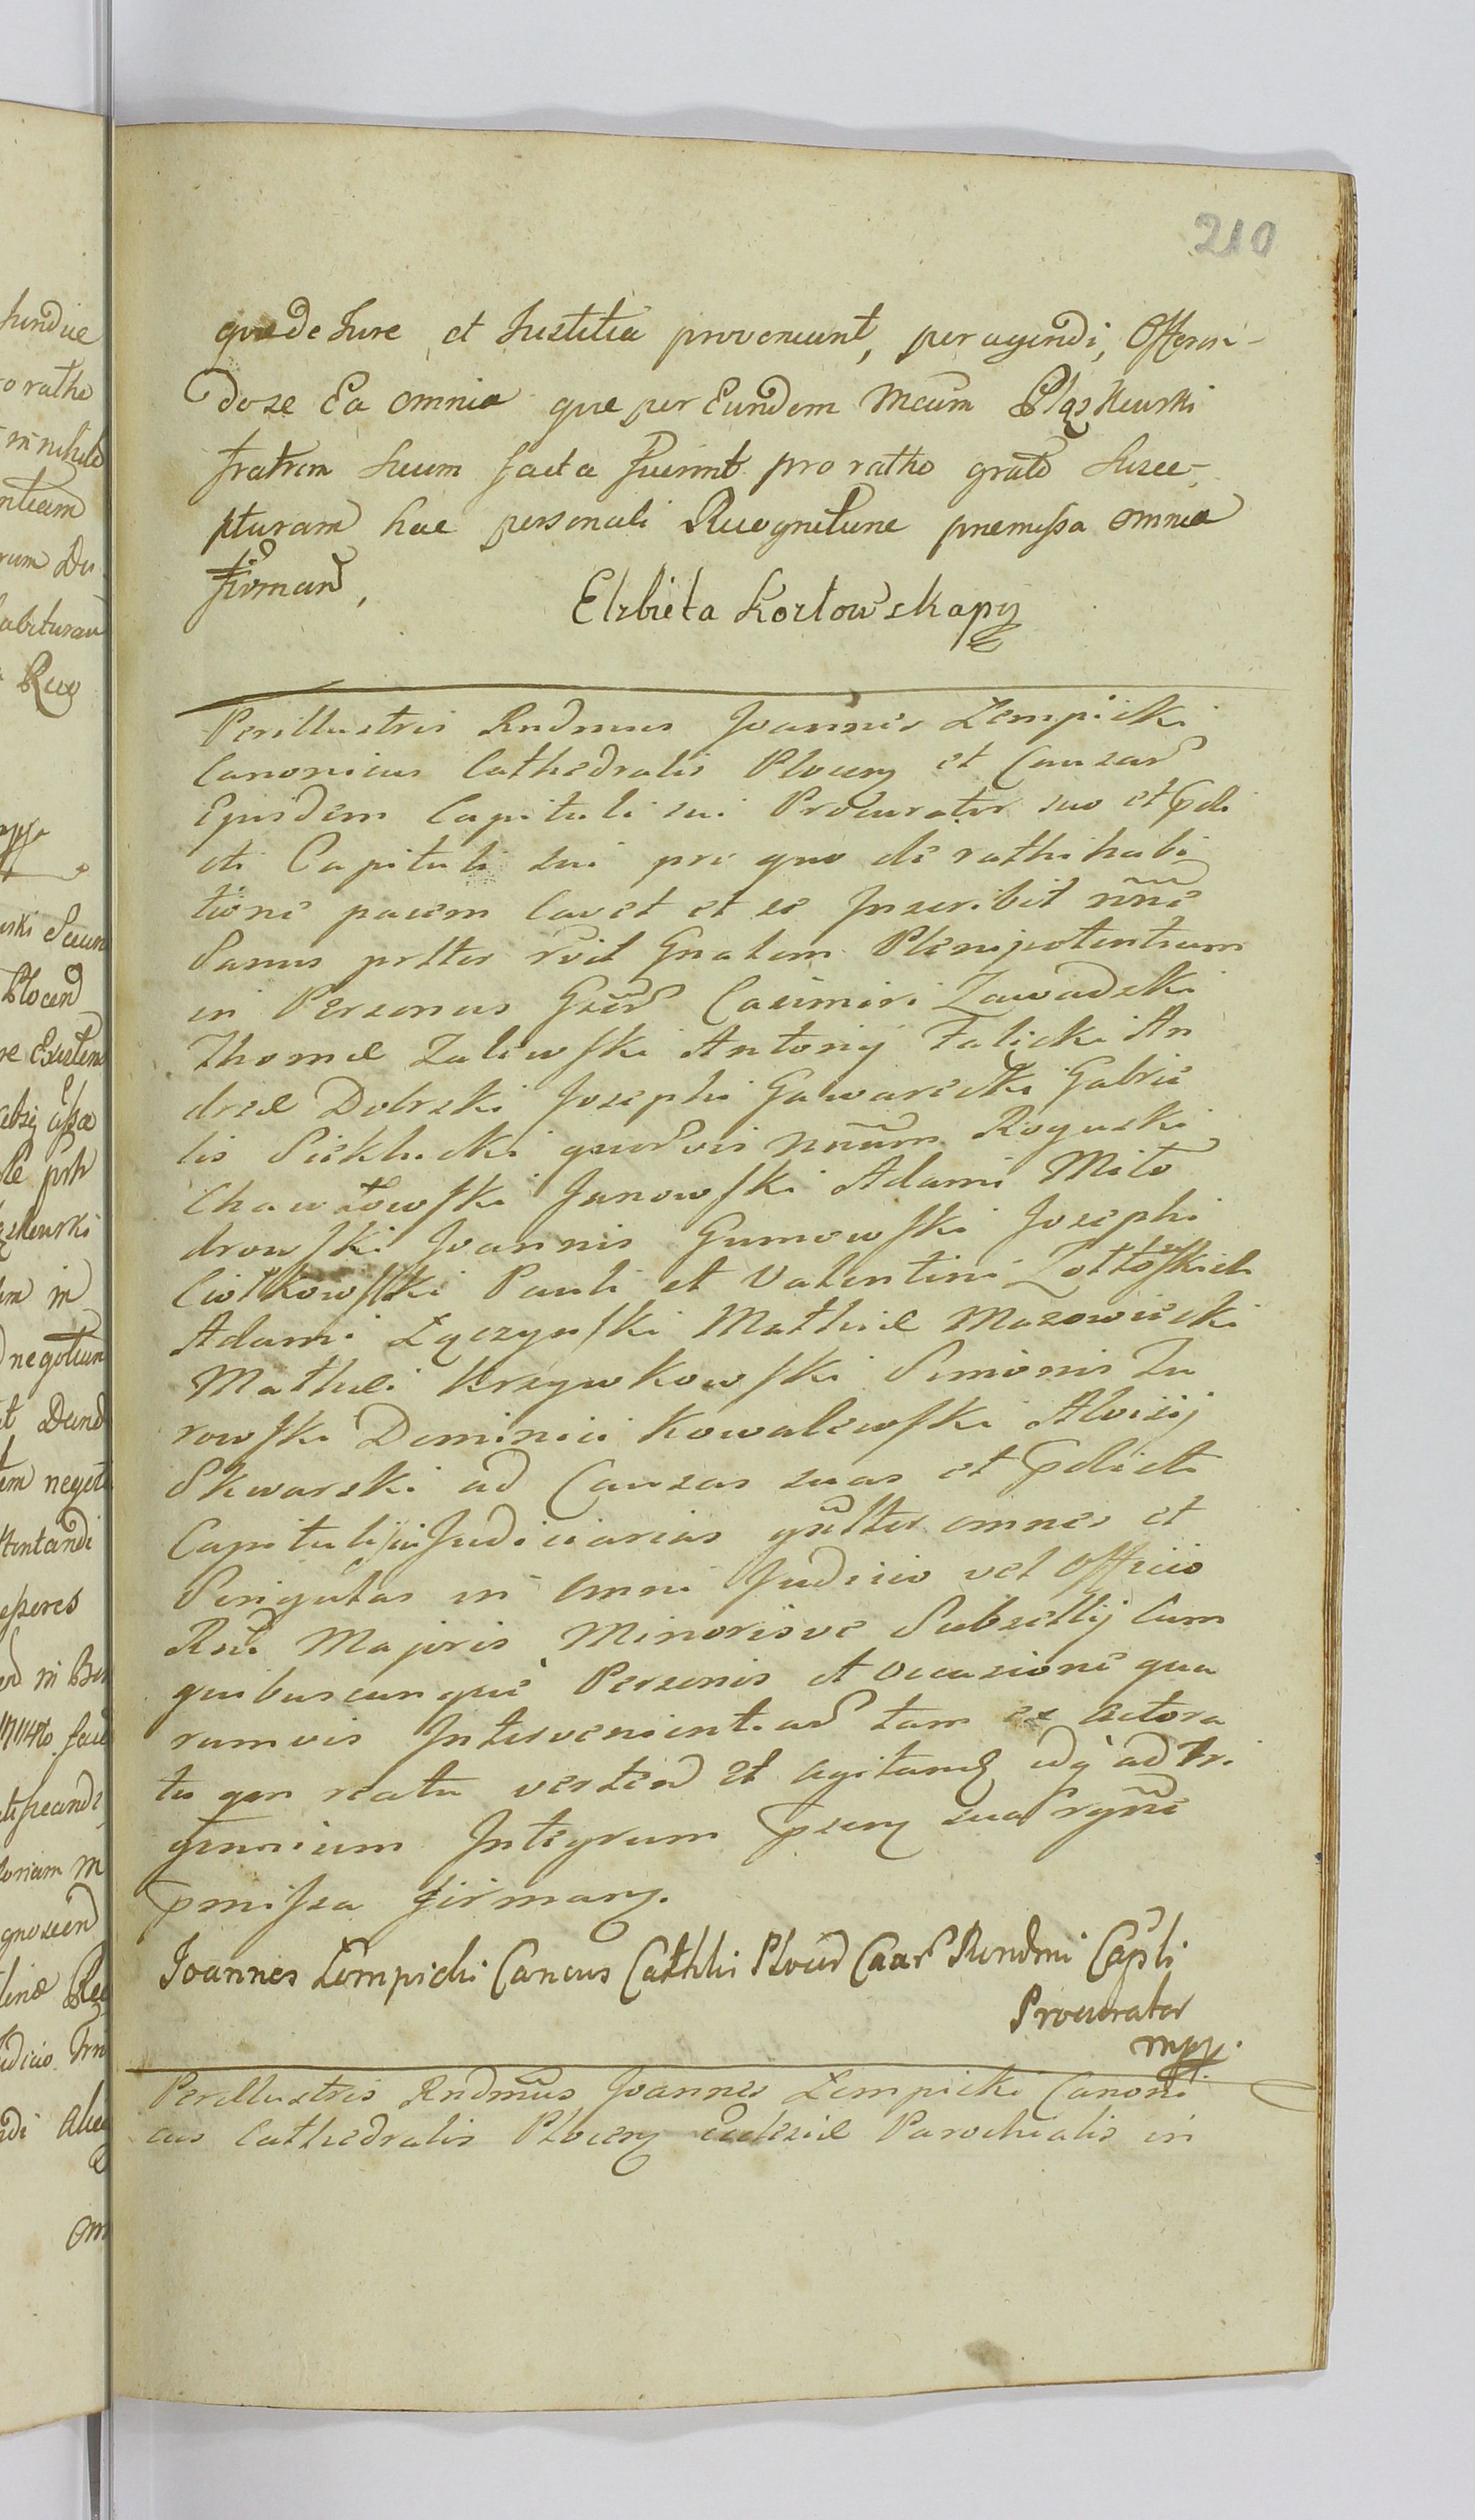 210
quæ de Jure et Justitia proveniunt, peragendi, Offeren-
do se Ea omnia que per Eundem Mcum Pląskowski
fratrem suum facta fuerint pro ratho grato susce-
pturam hac personali Recognitione premissa omnia
firmand,
Elzbieta Kozłowska mpp
Perillustris Rndmus Joannes Łempicki
Canonicus Cathedralis Plocen et Causar
Ejusdem Capituli sui Procurator suo et pdi
cti Capituli sui pro quo de rathihabi
tione pacem cavet et se Inscribit nne
Sanus pltter rvit Gnalem Plenipotentiam
in Personas Gsor Casimiri Zawadzki
Thomæ Zalewski Antonij Falęcki An
dreæ Dobrski Josephi Gawarecki Gabrie
lis Sieklucki quorvis nnum Roguski
Chawłowski Janowski Adami Miło
drowski Joannis Gumowski Josephi
Ciołkowski Pauli et Valentini Żółtowskich
Adami Łączynski Mathiæ Mazowiecki
Mathei Krzywkowski Simonis Żu
rowski Dominici Kowalewski Aloisij
Skwarski ad Causas suas et pdicti
Capituli sui Judiciarias gnltter omnes et
Singulas in omni Judicio vel Officio
Rni Majoris Minorisve Subsellij Cum
quibuscunque Personis et occasione qua
rumvis Intervenientiar tam ex actora
tu qm reatu vertend et agitand usq ad tri
gennium Integrum psens sua rgne
pmissa firmans.
Joannes Łempicki Cancus Cathlis Plocen Caar Rendmi Capli
Procurator
mpp.
Perillustris Rndmus Joannes Łempicki Canoni
cus Cathedralis Plocen Ecclesiæ Parochialis in